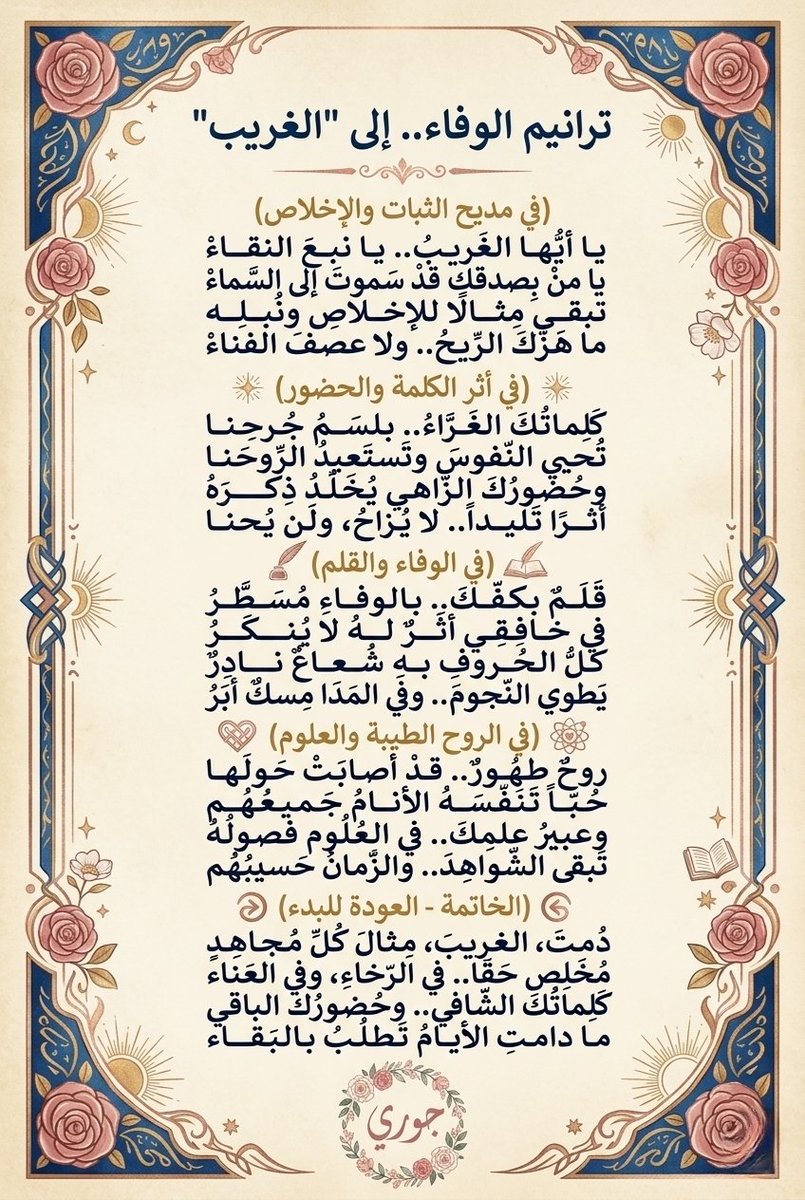 ترانيم الوفاء.. إلى "الغريب"
(في مديح الثبات والإخلاص)
يا أيُّها الغَريبُ.. يا نبعَ النقاءْ
يا منْ بِصدقكِ قدْ سَموتَ إلى السَّماءْ
تبقى مِثالًا للإخلاصِ ونُبلِه
ما هَزَّكَ الرِّيحُ.. ولا عصفَ الفناءْ
(في أثر الكلمة والحضور)
كَلِماتُكَ الغَرَّاءُ.. بلسَمُ جُرحِنا
تُحيي النّفوسَ وتَستَعيدُ الرِّوحَنا
وحُضورُكَ الزّاهي يُخَلّدُ ذِكرَهُ
أثرًا تَليداً.. لا يُزاحُ، ولَن يُحنا
(في الوفاء والقلم)
قَلَمٌ بكفّكَ.. بالوفاءِ مُسَطَّرُ
في خافِقِي أثَرٌ لهُ لا يُنكَرُ
كلُّ الحُروفِ به شُعاعٌ نادِرٌ
يَطوي النّجومَ.. وفي المَدَا مِسكٌ أبَرُ
(في الروح الطيبة والعلوم)
روحٌ طهُورٌ.. قدْ أصابَتْ حَولَها
حُبّاً تَنَفّسَهُ الأنامُ جَميعُهُم
وعبيرُ علمِكَ.. في العُلُوم فصولُهُ
تَبقى الشّواهِدَ.. والزَّمانُ حَسيبُهُم
(الخاتمة - العودة للبدء)
دُمتَ، الغريبَ، مِثالَ كُلِّ مُجاهِدٍ
مُخَلِص حَقّا.. في الرّخاءِ، وفي العَناء
كَلِماتُكَ الشّافي.. وحُضورُكَ الباقي
ما دامتِ الأيامُ تَطلُبُ بالبَقاء
جوري